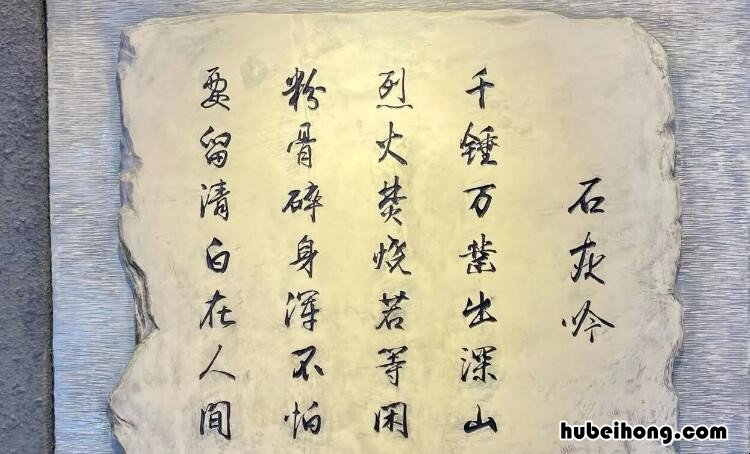 石灰吟
千锤万凿出深山
烈火焚烧若等闲
粉骨碎身浑不怕
要留清白在人间
hubeihong.com